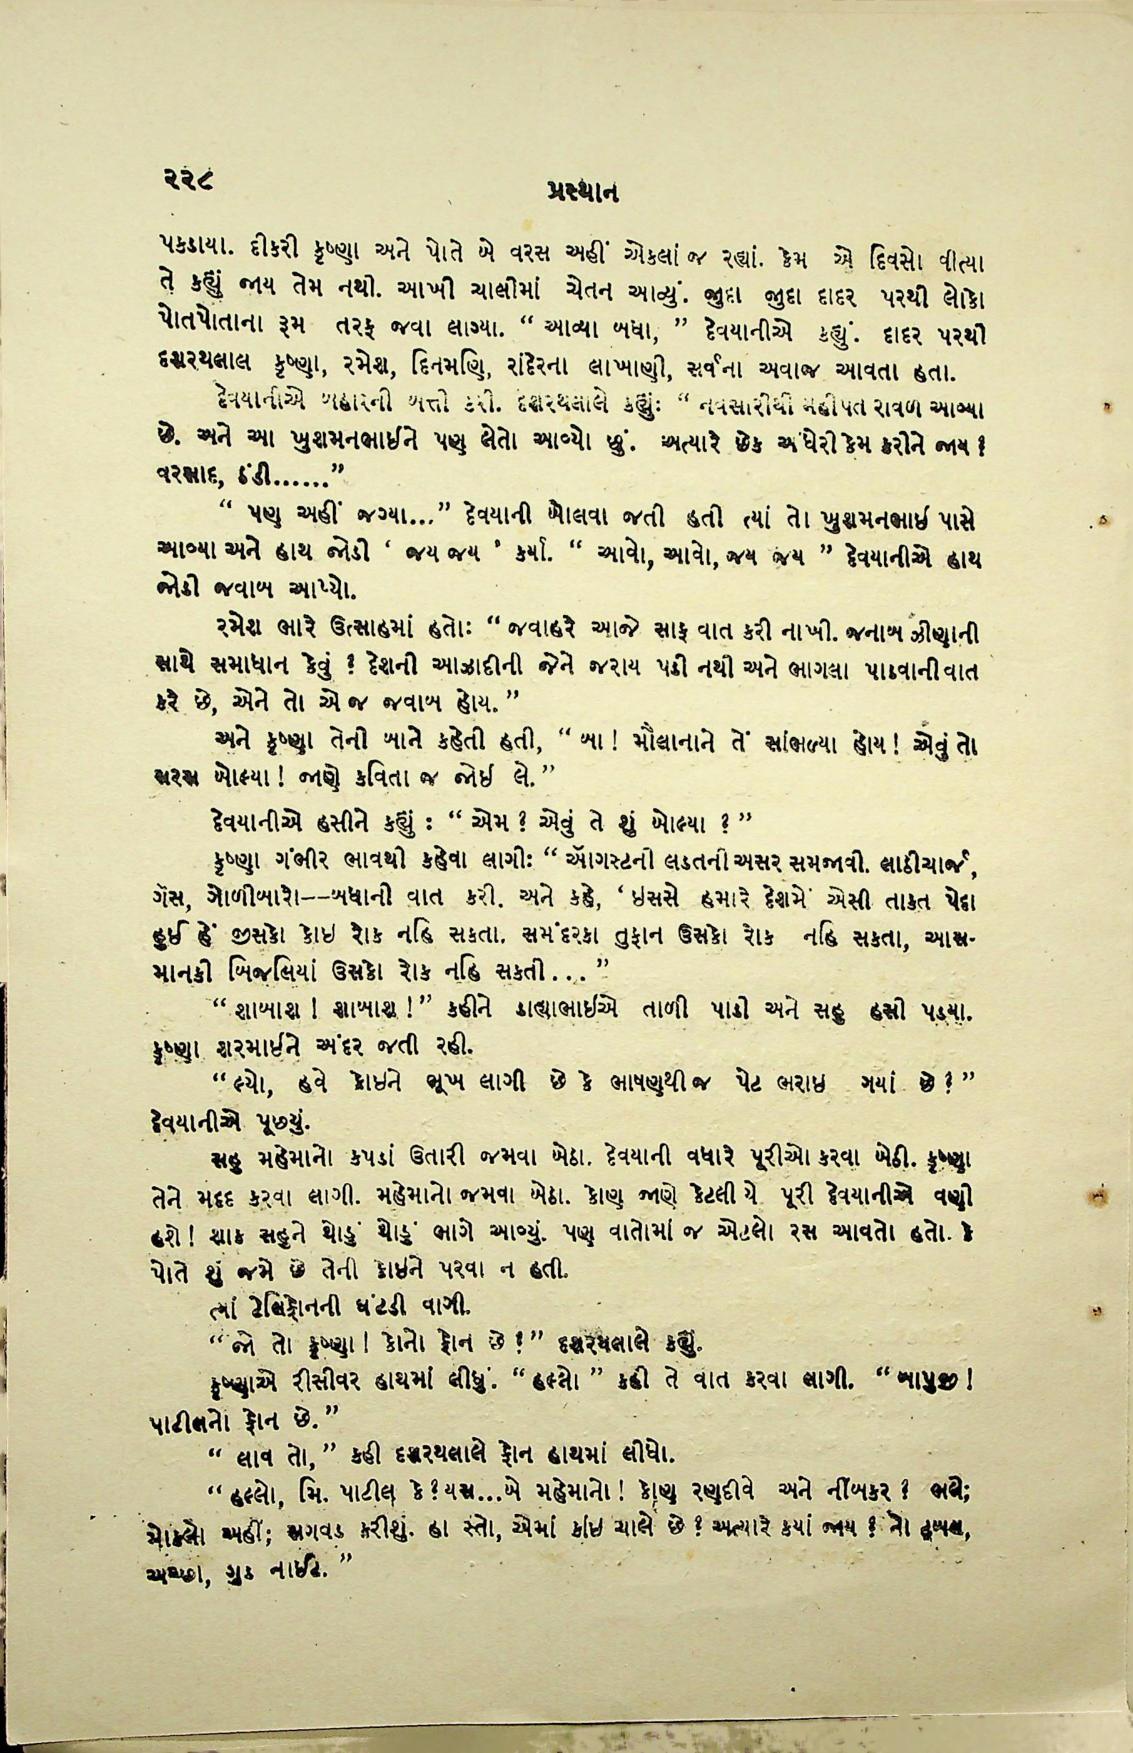 ૨૨૮
પ્રસ્થાન
પકડાયા. દીકરી કૃષ્ણા અને પોતે બે વરસ અહીં એકલાં જ રહ્યાં. કેમ એ દિવસો વીત્યા
તે કહ્યું જાય તેમ નથી. આખી ચાલીમાં ચેતન આવ્યું. જુદા જુદા દાદર પરથી લોકો
પોતપોતાના રૂમ તરફ જવા લાગ્યા. “ આવ્યા બધા, ” દેવયાનીએ કહ્યું. દાદર પરથી
દશરથલાલ કૃષ્ણા, રમેશ, દિનમણિ, રાંદેરના લાખાણી, સર્વના અવાજ આવતા હતા.
દેવયાનીએ બહારની બત્તી કરી. દશરથલાલે કહ્યુંઃ “ નવસારીથી મહીપત રાવળ આવ્યા
છે. અને આ ખુશમનભાઈને પણ લેતો આવ્યો છું. અત્યારે છેક અંધેરી કેમ કરીને જાય ?
વરસાદ, ઠંડી......”
“ પણ અહીં જગ્યા...” દેવયાની બોલવા જતી હતી ત્યાં તો ખુશમનભાઈ પાસે
આવ્યા અને હાથ જોડી ‘ જય જય ’ કર્યા. “ આવો, આવો, જય જય ” દેવયાનીએ હાથ
જોડી જવાબ આપ્યો.
રમેશ ભારે ઉત્સાહમાં હતોઃ “ જવાહરે આજે સાફ વાત કરી નાખી. જનાબ ઝીણાની
સાથે સમાધાન કેવું ? દેશની આઝાદીની જેને જરાય પડી નથી અને ભાગલા પાડવાની વાત
કરે છે, એને તો એ જ જવાબ હોય. ”
અને કૃષ્ણા તેની બાને કહેતી હતી, “ બા ! મૌલાનાને તેં સાંભળ્યા હોય ! એવું તો
સરસ બોલ્યા ! જાણે કવિતા જ જોઈ લે. ”
દેવયાનીએ હસીને કહ્યું : “ એમ ? એવું તે શું બોલ્યા ? ”
કૃષ્ણા ગંભીર ભાવથી કહેવા લાગીઃ “ ઑગસ્ટની લડતની અસર સમજાવી. લાઠીચાર્જ,
ગૅસ, ગોળીબારો--બધાની વાત કરી. અને કહે, ‘ ઇસસે હમારે દેશમેં એસી તાકત પેદા
હુઈ હેં જીસકો કોઇ રોક નહિ સકતા. સમંદરકા તુફાન ઉસકો રોક નહિ સકતા, આસ-
માનકી બિજલિયાં ઉસકો રોક નહિ સકતી... ”
“ શાબાશ ! શાબાશ ! ” કહીને ડાહ્યાભાઈએ તાળી પાડી અને સહુ હસી પડ્યા.
કૃષ્ણા શરમાઈને અંદર જતી રહી.
“ લ્યો, હવે કોઇને ભૂખ લાગી છે કે ભાષણથી જ પેટ ભરાઇ ગયાં છે ? ”
દેવયાનીએ પૂછ્યું.
સહુ મહેમાનો કપડાં ઉતારી જમવા બેઠા. દેવયાની વધારે પૂરીઓ કરવા બેઠી. કૃષ્ણા
તેને મદદ કરવા લાગી. મહેમાનો જમવા બેઠા. કોણ જાણે કેટલી યે પૂરી દેવયાનીએ વણી
હશે ! શાક સહુને થોડું થોડું ભાગે આવ્યું. પણ વાતોમાં જ એટલો રસ આવતો હતો. કે
પોતે શું જમે છે તેની કોઇને પરવા ન હતી.
ત્યાં ટેલિફોનની ઘંટડી વાગી.
“ જો તો કૃષ્ણા ! કોનો ફોન છે ? ” દશરથલાલે કહ્યું.
કૃષ્ણાએ રીસીવર હાથમાં લીધું. “ હલ્લો ” કહી તે વાત કરવા લાગી. “ બાપુજી !
પાટીલનો ફોન છે. ”
“ લાવ તો, ” કહી દશરથલાલે ફોન હાથમાં લીધો.
“ હલ્લો, મિ. પાટીલ કે ? યસ...બે મહેમાનો ! કોણ રણદીવે અને નીંબકર ? ભલે;
મોકલો અહીં; સગવડ કરીશું. હા સ્તો, એમાં કાંઇ ચાલે છે ? અત્યારે કયાં જાય ? નો ટ્રબલ,
અચ્છા, ગુડ નાઈટ. ”